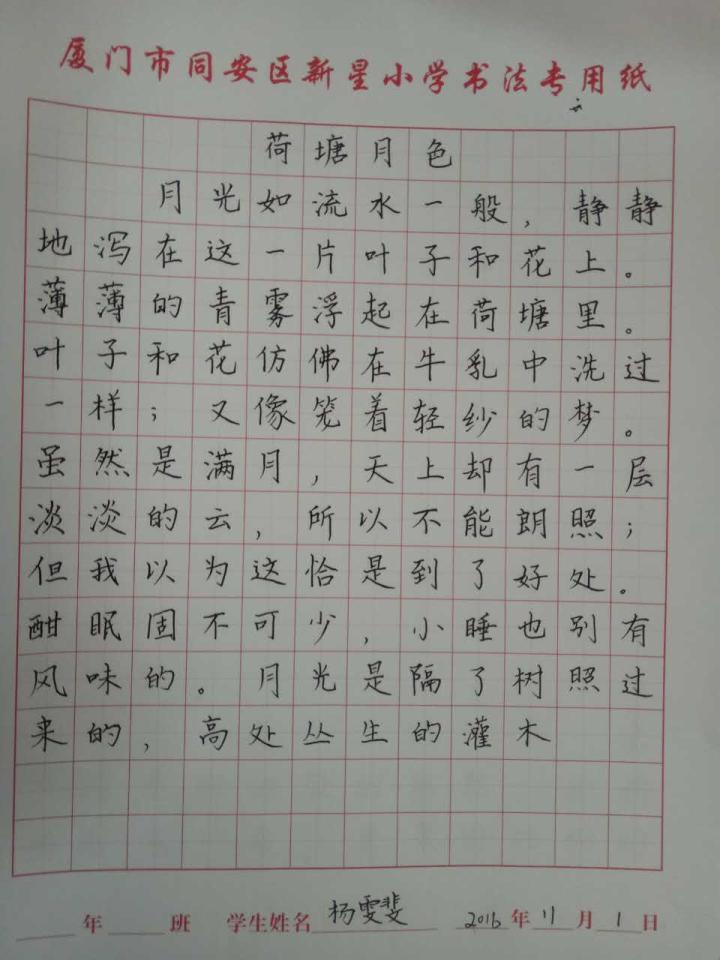 厦门市同安区新星小学书法专用纸
荷塘月色
月光如流水一般,静静
地泻在这一片叶子和花上。
薄薄的青雾浮起在荷塘里。
叶子和花仿佛在牛乳中洗过
一样;又像笼着轻纱的梦。
虽然是满月,天上却有一层
淡淡的云,所以不能朗照;
但我以为这恰是到了好处。
酣眠固不可少,小睡也别有
风味的。月光是隔了树照过
来的,高处丛生的灌木
年 班 学生姓名 杨雯斐 2016年11月1日